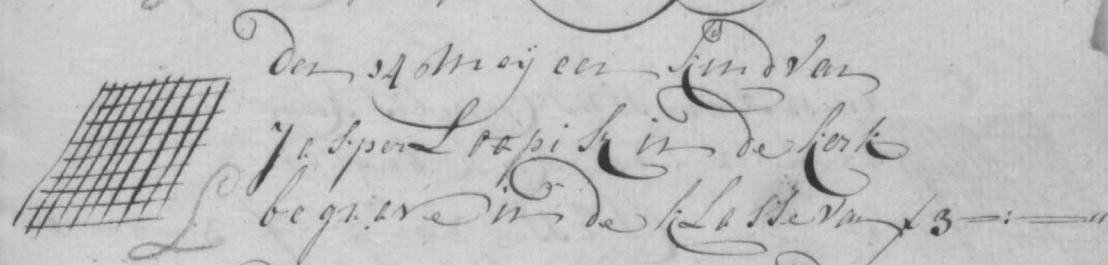 Den 14 Meij een kind van
Jasper Loopik in de kerk
begrave in de klasse van f 3 —:—"